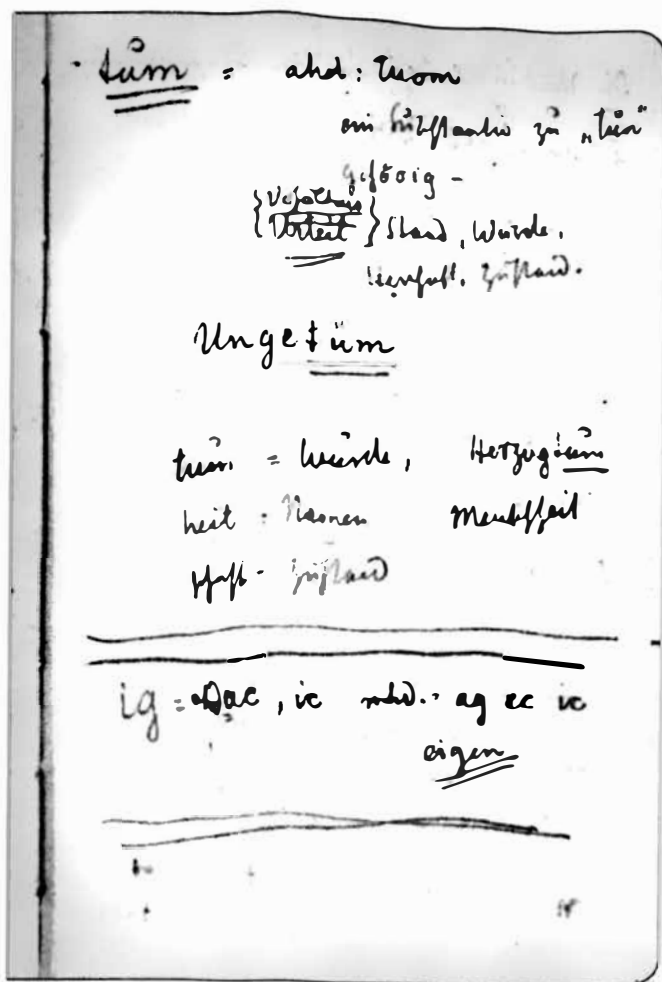 tum = ahd: tuom
ein Substantiv zu „tun“
gehörig -
{ Urteil } Stand, Würde,
Zustand.
Ungetüm
tum = Würde, Herzogtum
heit = Menschheit
schaft - Zustand
ig = ac, ic mhd. - ag ec ic
eigen